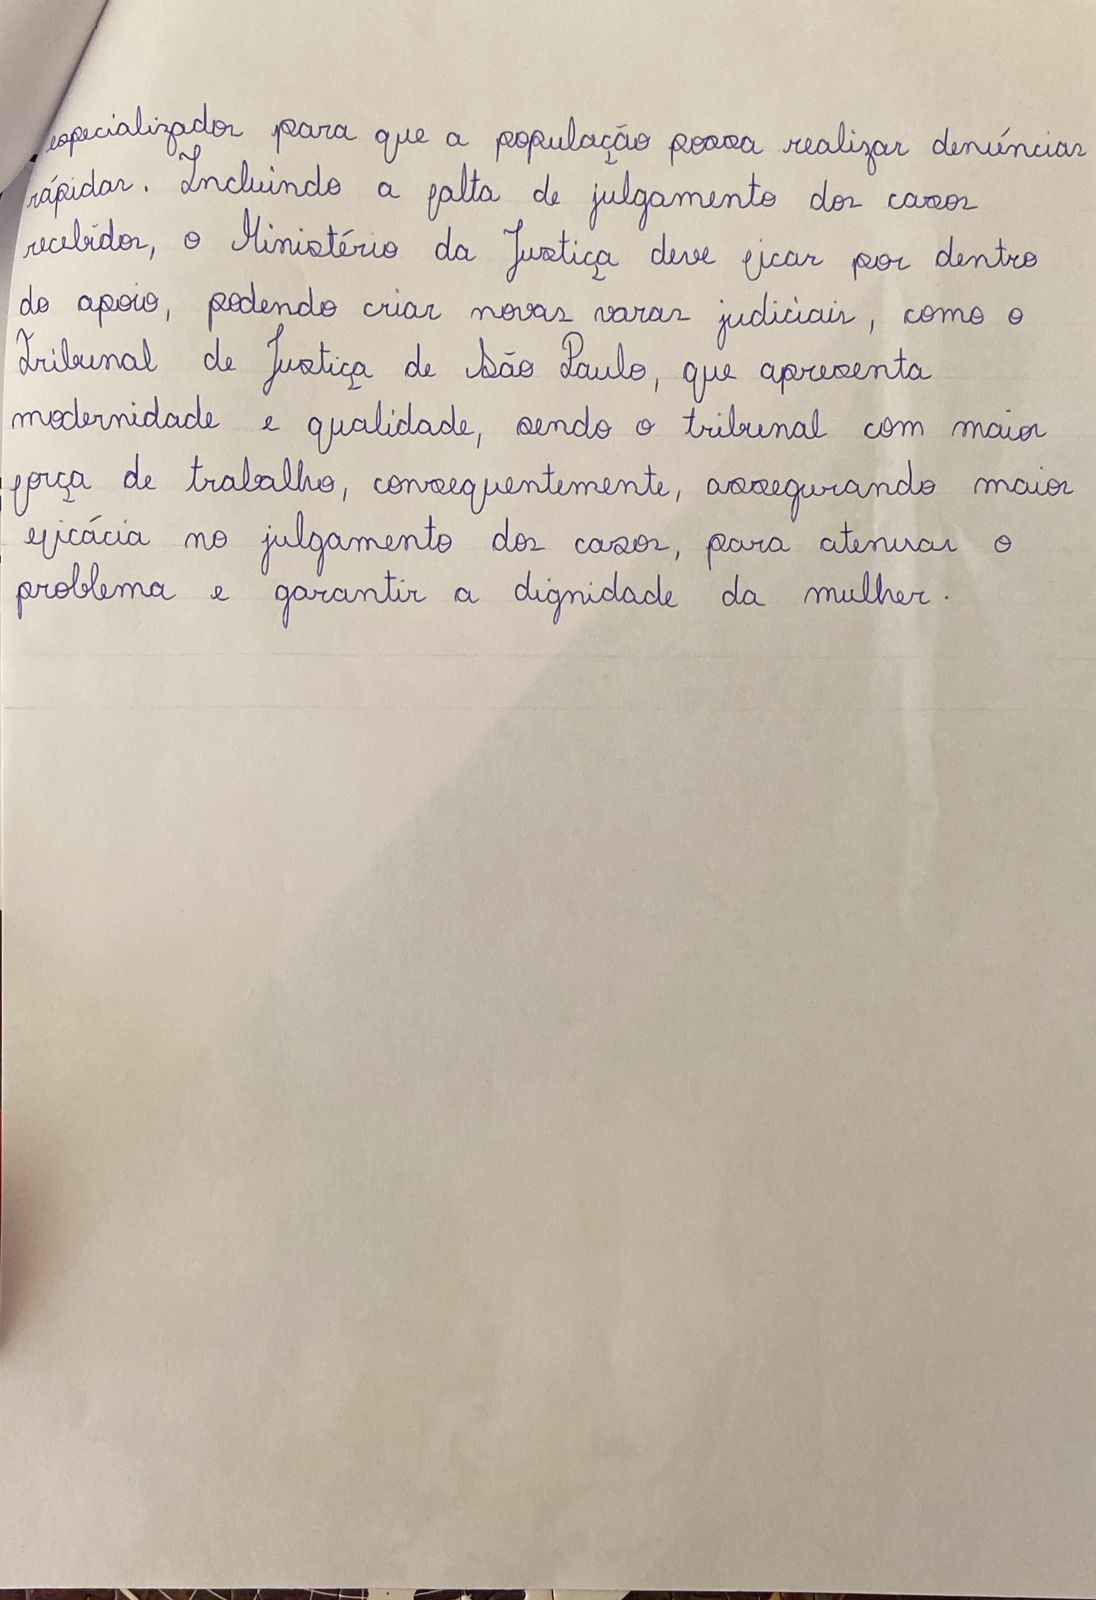 especializados para que a população possa realizar denúncias
rápidas. Incluindo a falta de julgamento dos casos
recebidos, o Ministério da Justiça deve ficar por dentro
do apoio, podendo criar novas varas judiciais, como o
Tribunal de Justiça de São Paulo, que apresenta
modernidade e qualidade, sendo o tribunal com maior
força de trabalho, consequentemente, assegurando maior
eficácia no julgamento dos casos, para atenuar o
problema e garantir a dignidade da mulher.